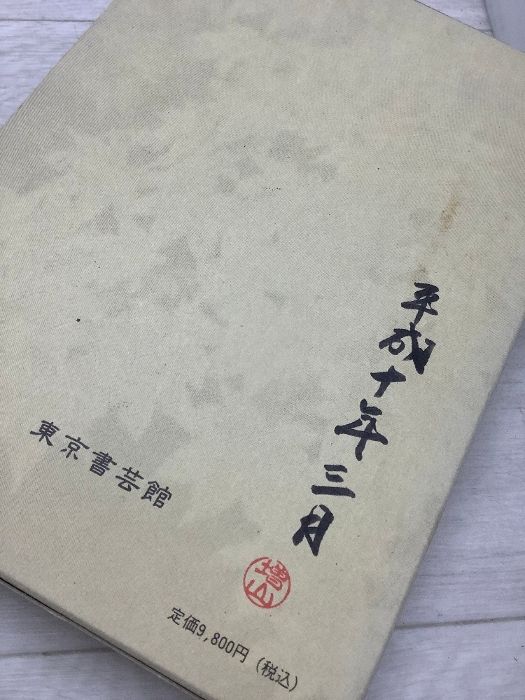 平成十年三月
増山
東京書芸館
定価9,800円（税込）